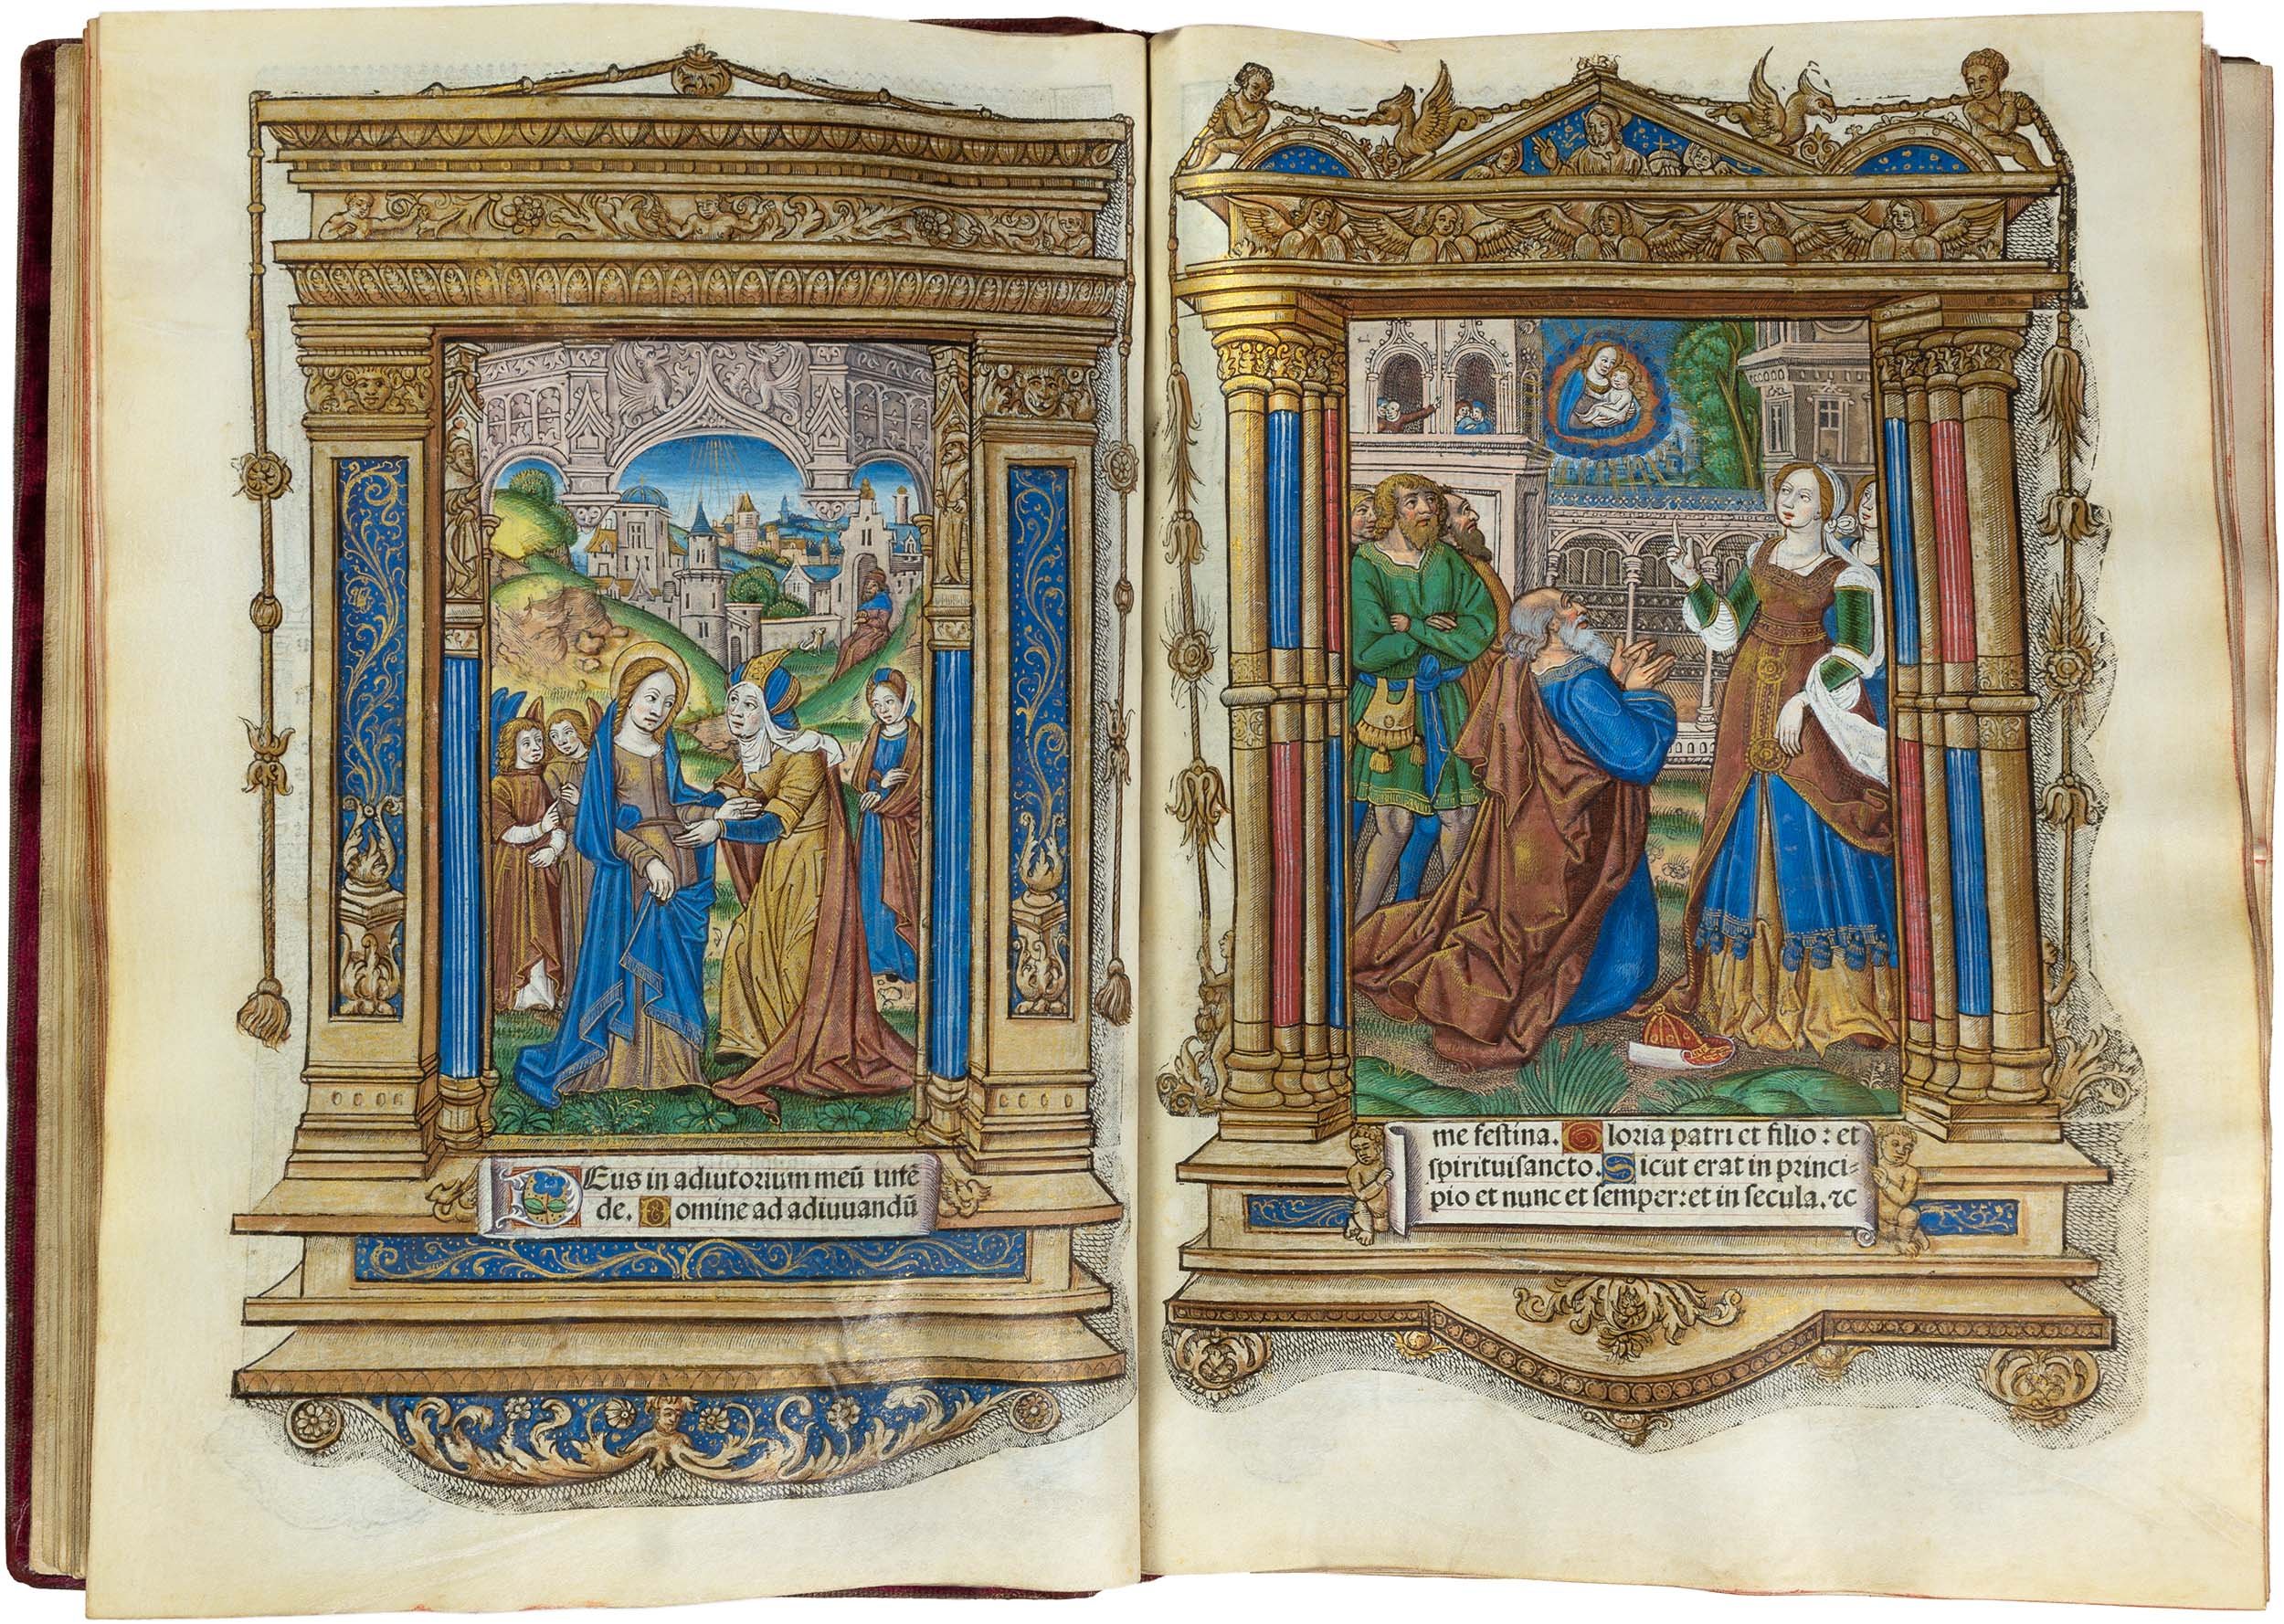 DEus in adiutorium meū intē
de. Domine ad adiuuandū
me festina. Gloria patri et filio: et
spirituisancto. Sicut erat in princi-
pio et nunc et semper: et in secula. ⁊c